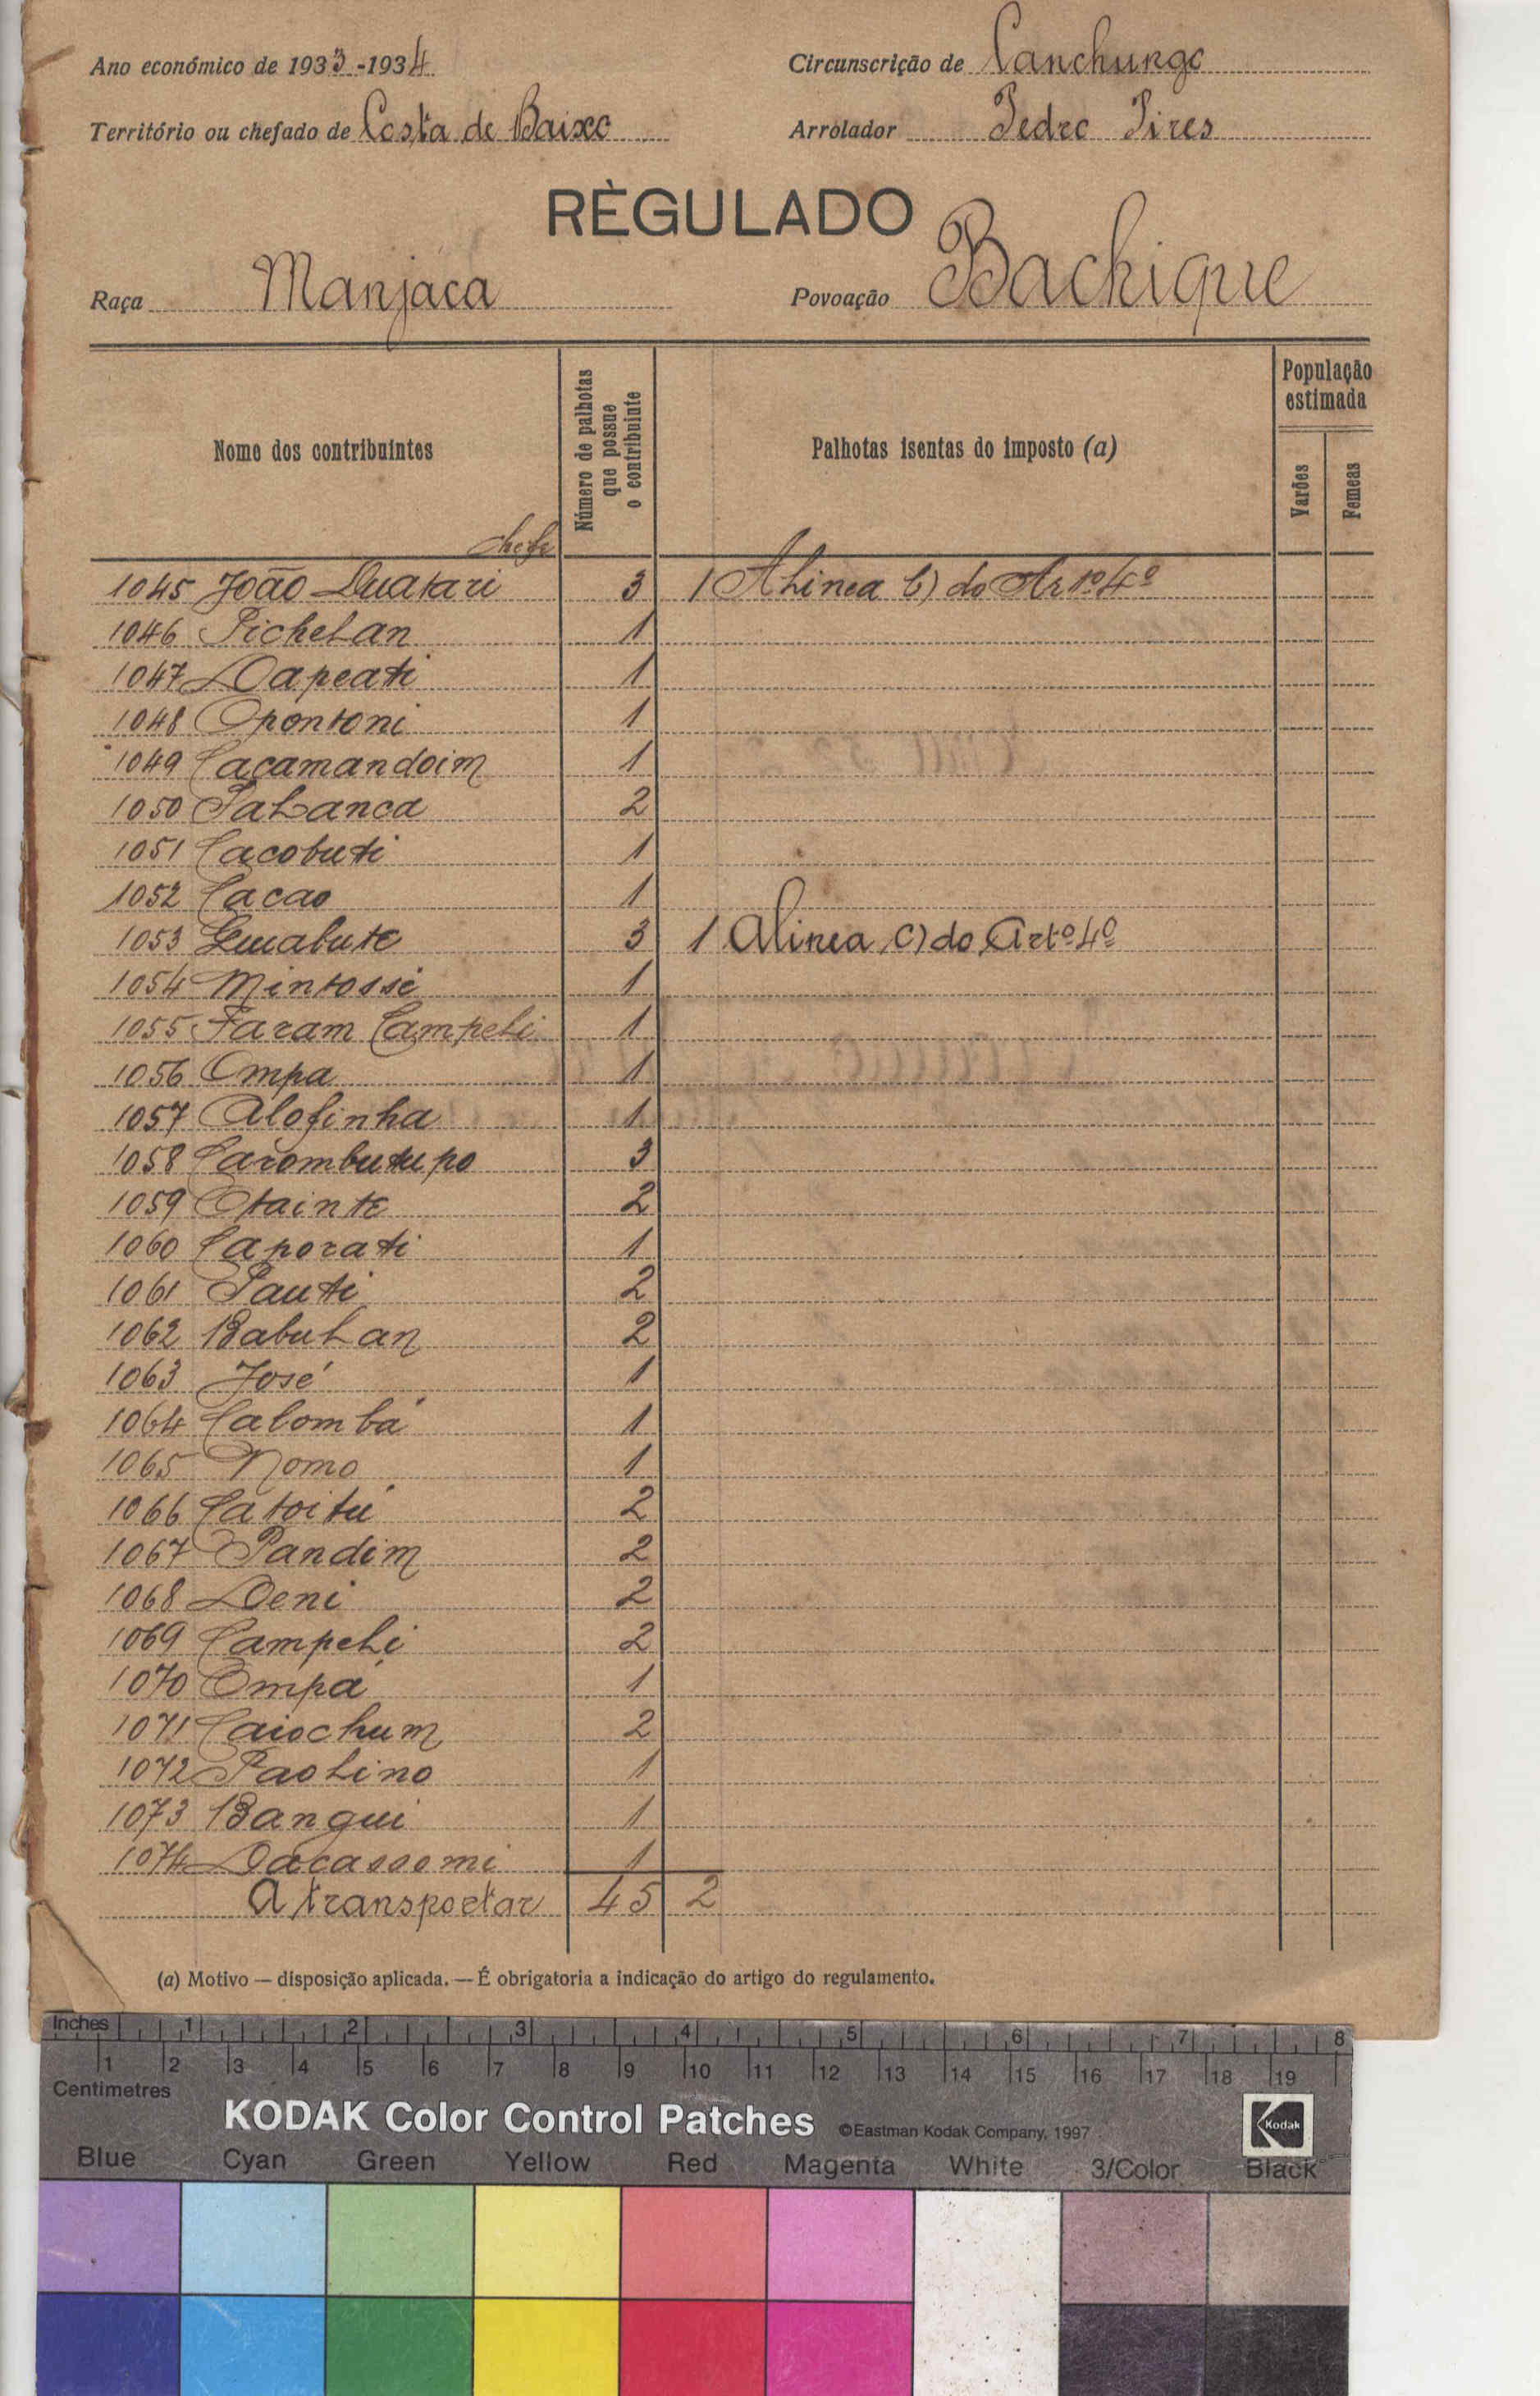 Ano económico de 1933-1934 Circunscrição de Canchungo
Território ou chefado de Costa de Baixo Arrolador Pedro Pires
RÈGULADO
Raça Manjaca Povoação Bachique
Nome dos contribuintes
Número de palhotas que possue o contribuinte
Palhotas isentas do imposto (a)
População estimada
Varões
Femeas
chefe
1045 João Duatari 3 1 Alinea b) do Artº 4º
1046 Pichelan 1
1047 Dapeati 1
1048 Opontoni 1
1049 Caçamandoim 1
1050 Palanca 2
1051 Cacobuti 1
1052 Cacao 1
1053 Guiabute 3 1 Alinea c) do Artº 4º
1054 Mintossé 1
1055 Faram Campeli 1
1056 Ompa 1
1057 Alofinha 1
1058 Carombutupo 3
1059 Otainte 2
1060 Caporati 1
1061 Pauti 2
1062 Babulan 2
1063 José 1
1064 Calombá 1
1065 Nomo 1
1066 Catoitú 2
1067 Pandim 2
1068 Deni 2
1069 Campeli 2
1070 Ompá 1
1071 Caiochum 2
1072 Paolino 1
1073 Bangui 1
1074 Dacassomi 1
A transportar 45 2
(a) Motivo — disposição aplicada. — É obrigatoria a indicação do artigo do regulamento.
Inches 1 2 3 4 5 6 7 8
1 2 3 4 5 6 7 8 9 10 11 12 13 14 15 16 17 18 19
Centimetres
KODAK Color Control Patches ©Eastman Kodak Company, 1997 Kodak
Blue Cyan Green Yellow Red Magenta White 3/Color Black